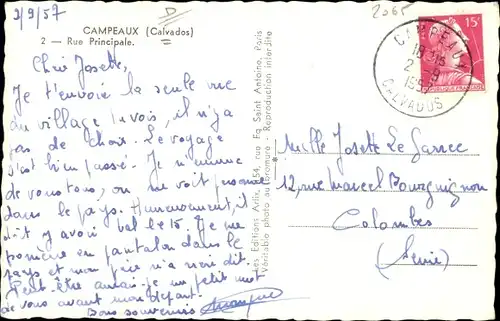 2/9/57
CAMPEAUX (Calvados)
2 — Rue Principale.
2065
15F
CAMPEAUX
2 - 9
CALVADOS
Chère Josette,
Je t'envoie la seule vue
du village tu vois, il n'y a
pas de choix. Le voyage
s'est bien passé. Je m'ennuie
de vous tous, on ne voit personne
dans le pays. Heureusement, il
doit y avoir bal le 15. Je me
promène en pantalon dans le
pays et mon père n'a rien dit.
Peut-être aurai-je un petit mot
de vous avant mon départ.
Bons souvenirs
Les Editions Artis, 54, rue Fg Saint Antoine, Paris
Véritable photo au bromure - Reproduction interdite
Mlle Josette Le Garrec
12, rue Marcel Bourguignon
Colombes
(Seine)